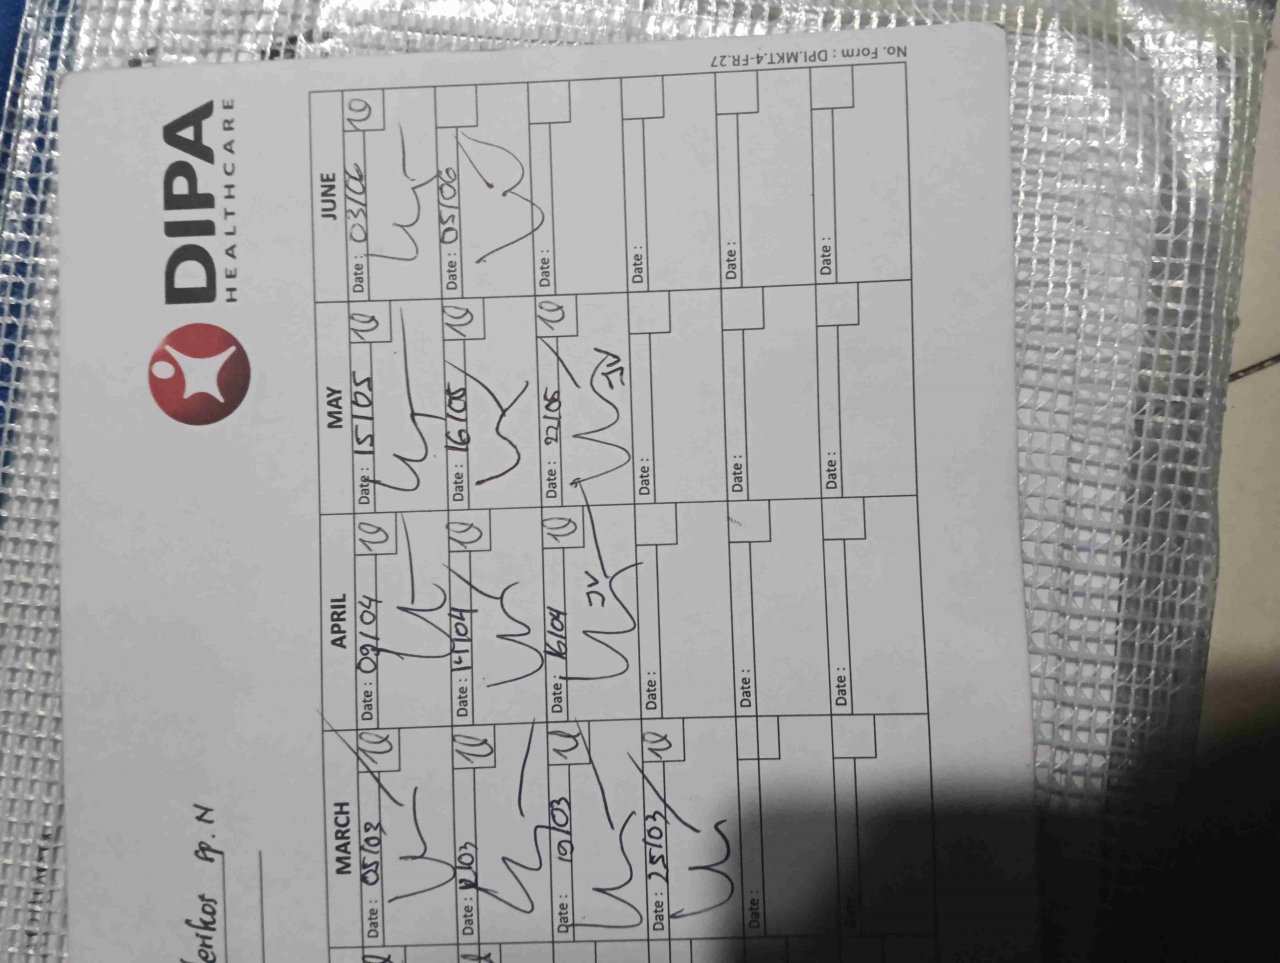 DIPA
HEALTHCARE
No. Form : DPI.MKT.4-FR.27
MARCH APRIL MAY JUNE
Date : 05/03 Date : 09/04 Date : 15/05 Date : 03/06
Date : 12/03 Date : 14/04 Date : 16/05 Date : 05/06
Date : 19/03 Date : 16/04 Date : 22/05 Date :
JV JV
Date : 25/03 Date : Date : Date :
Date : Date : Date : Date :
Date : Date : Date :